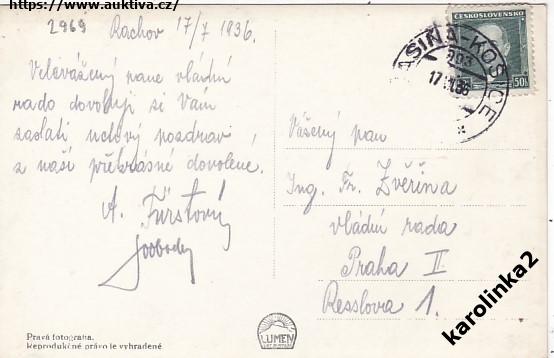 https://www.auktiva.cz/
2969 Rachov 17/7 1936.
Velevážený pane vládní
rado dovoluji si Vám
zaslati uctivý pozdrav
z naší překrásné dovolené.
A. Fürstový
Svoboda
ČESKOSLOVENSKO
50h
JASIŇA-KOŠICE
203
17.VII.36
Vážený pan
Ing. Fr. Zvěřina
vládní rada
Praha II
Resslova 1.
LUMEN
Pravá fotografia.
Reprodukčné právo je vyhradené.
karolinka2